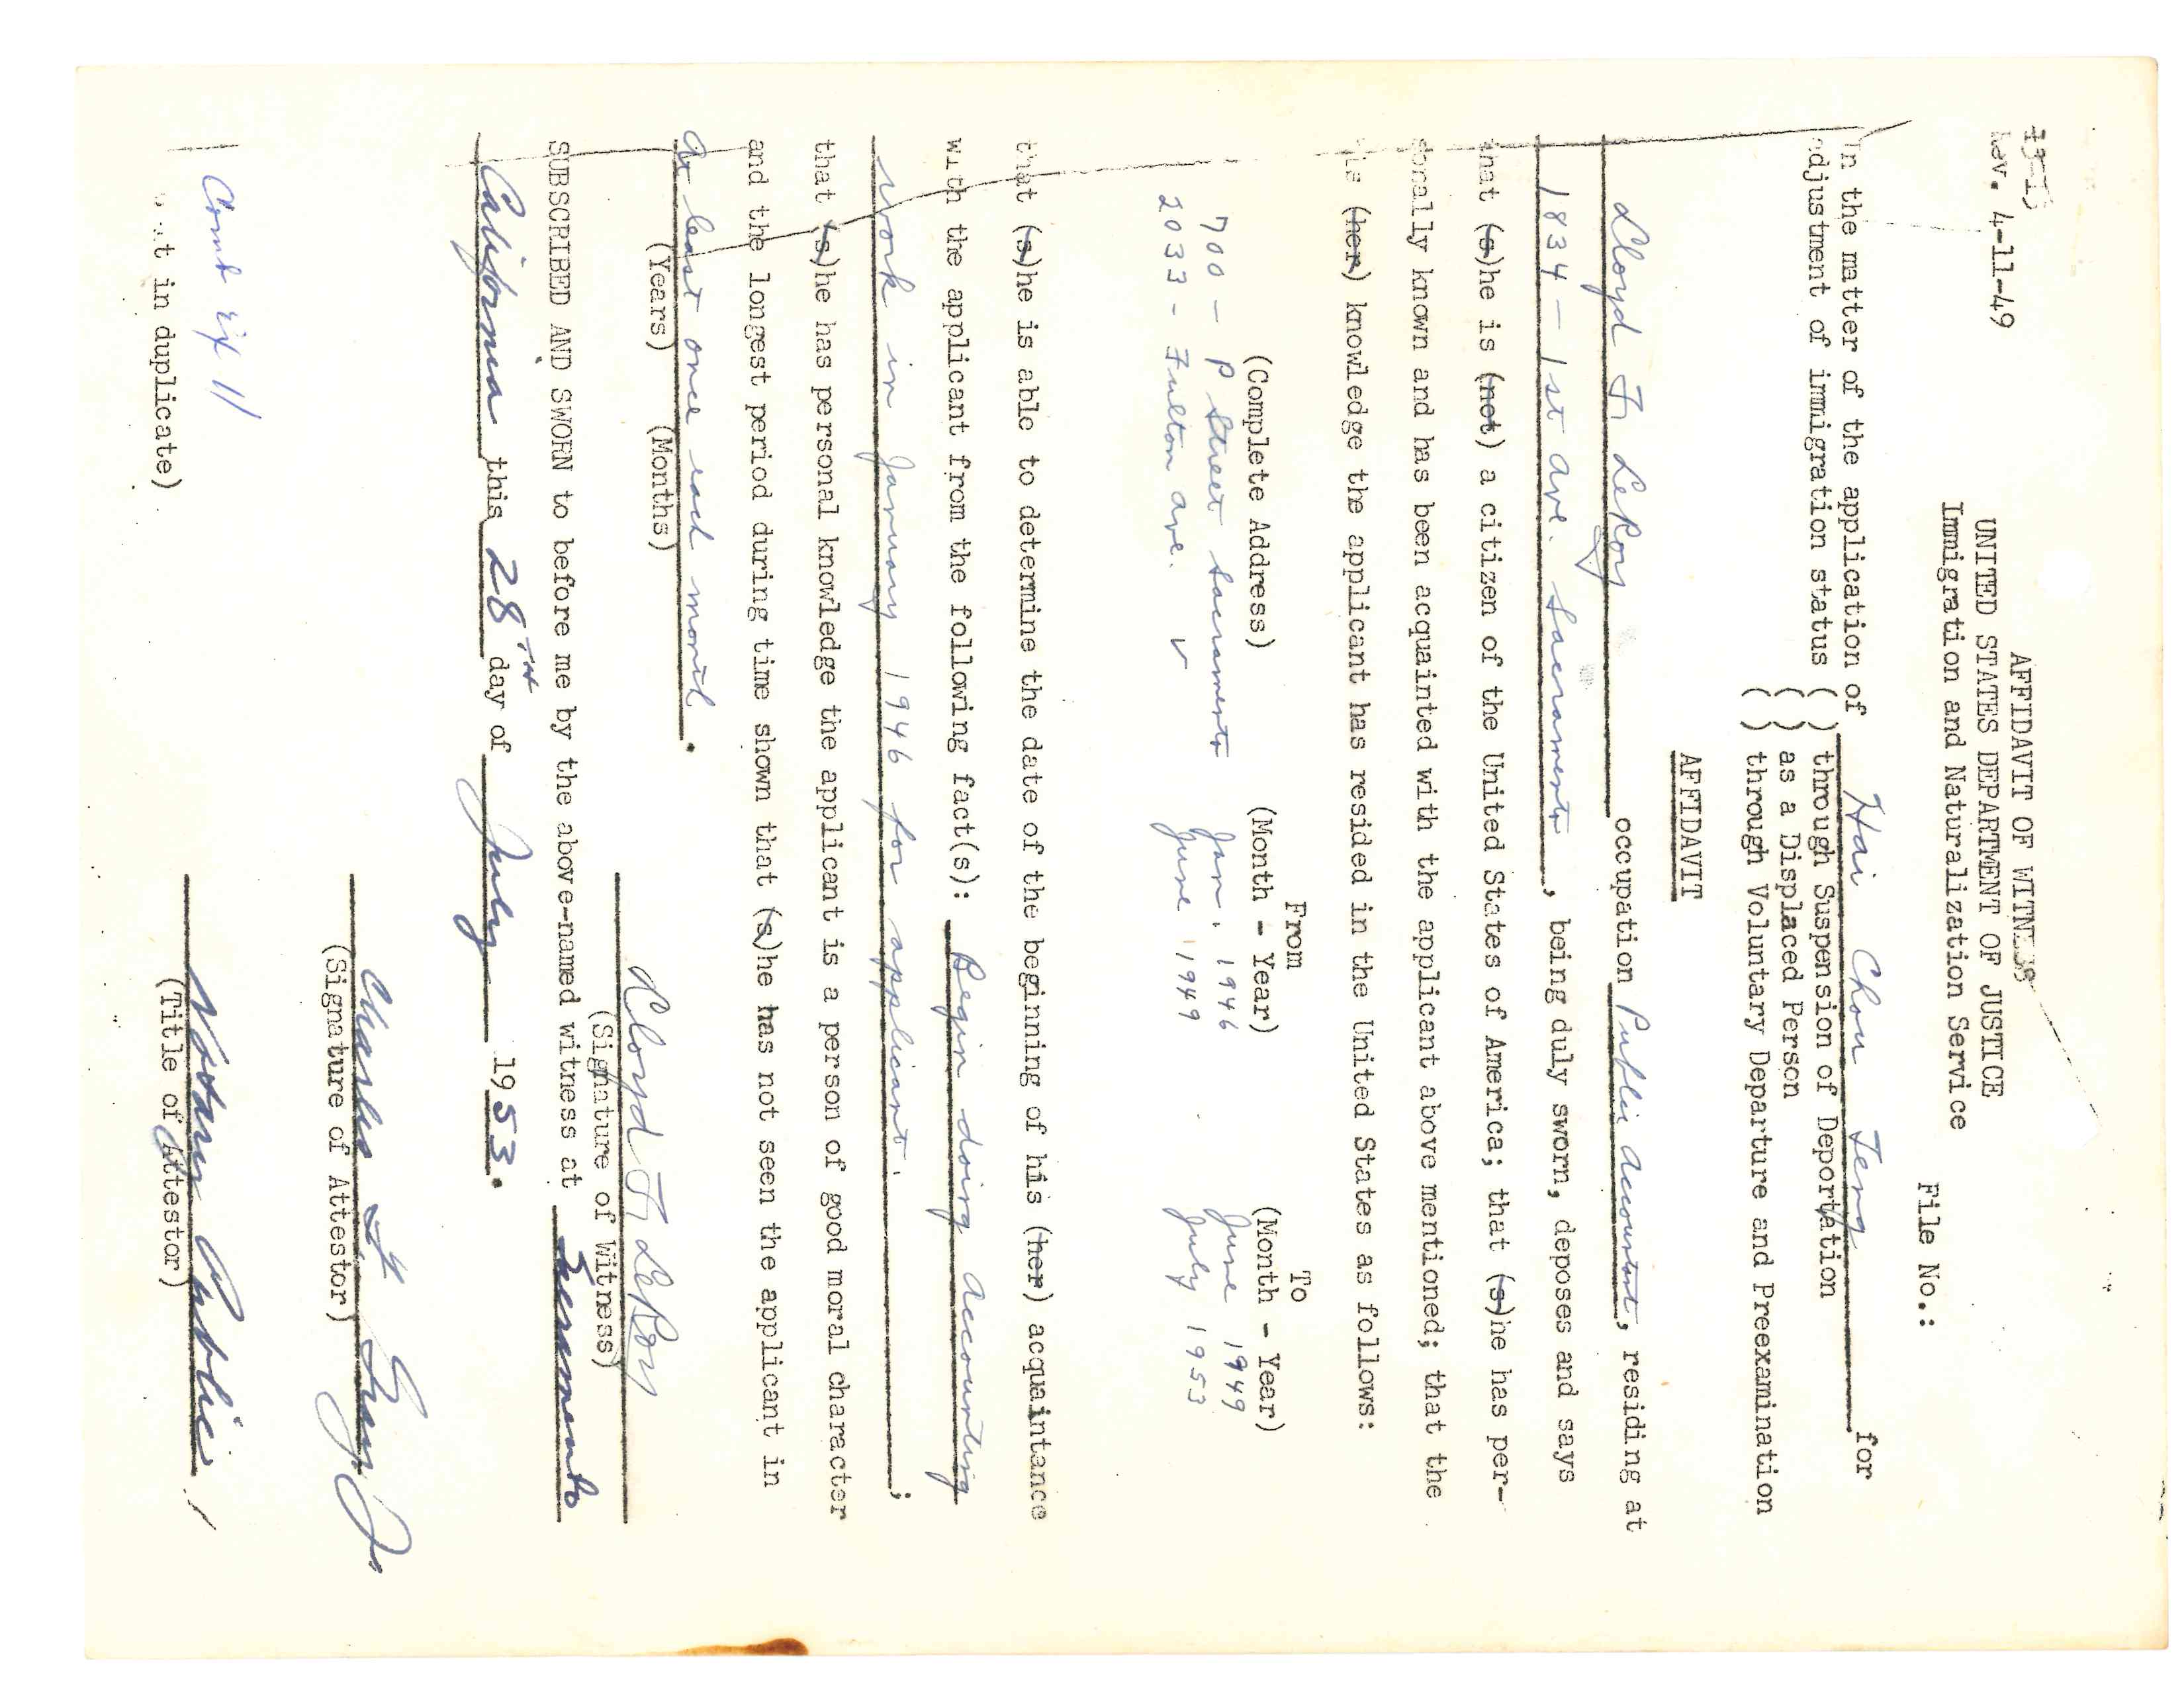 Rev. 4-11-49
AFFIDAVIT OF WITNESS
UNITED STATES DEPARTMENT OF JUSTICE
Immigration and Naturalization Service
File No.:
In the matter of the application of Hai Chou Teng for
adjustment of immigration status ( ) through Suspension of Deportation
( ) as a Displaced Person
( ) through Voluntary Departure and Preexamination
AFFIDAVIT
Lloyd F. LeRoy occupation Public Accountant, residing at
1834 - 1st Ave. Sacramento, being duly sworn, deposes and says
that (s)he is (not) a citizen of the United States of America; that (s)he has per-
sonally known and has been acquainted with the applicant above mentioned; that the
his (her) knowledge the applicant has resided in the United States as follows:
From To
(Complete Address) (Month - Year) (Month - Year)
700 - P Street Sacramento Jan. 1946 June 1949
2033 - Fulton Ave. V June 1949 July 1953
that (s)he is able to determine the date of the beginning of his (her) acquaintance
with the applicant from the following fact(s): Begin doing Accounting
work in January 1946 for applicant. ;
that (s)he has personal knowledge the applicant is a person of good moral character
and the longest period during time shown that (s)he has not seen the applicant in
At least once each month.
(Years) (Months)
Lloyd F. LeRoy
(Signature of Witness)
SUBSCRIBED AND SWORN to before me by the above-named witness at Sacramento
California this 28TH day of July 1953.
Charles F. Gray Jr
(Signature of Attestor)
Comb Ex 11
Notary Public
(Title of Attestor)
in duplicate)